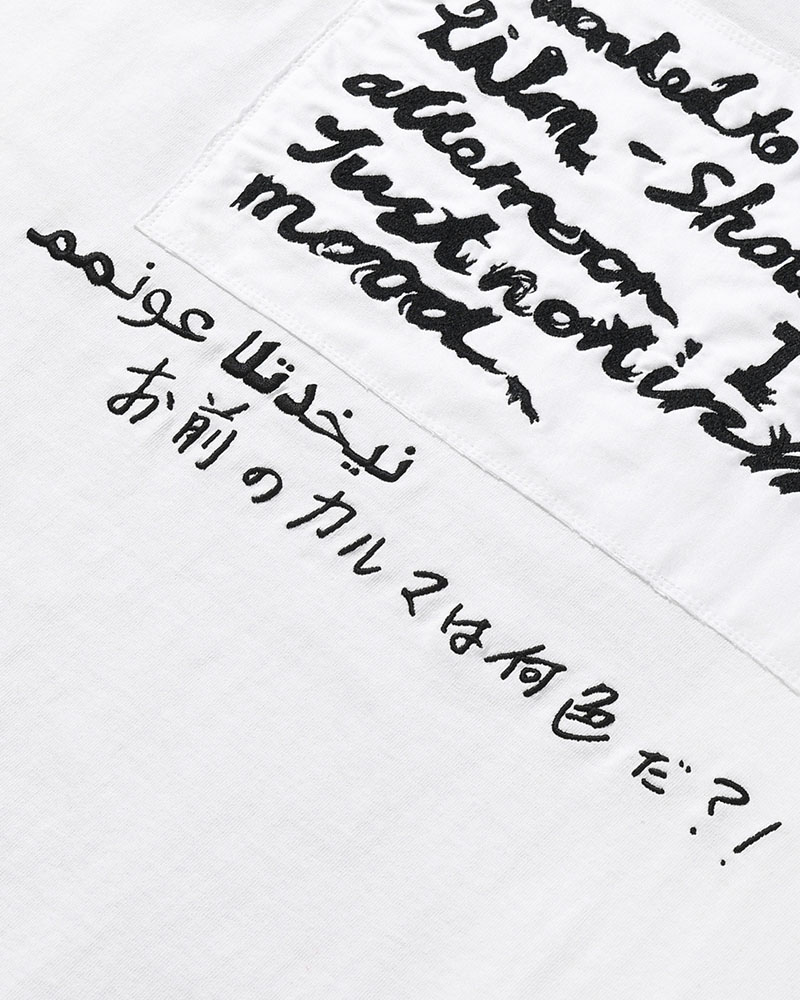 wanted to
film - Show
afternoon I
Just not in
mood,
نيخدتلا عونمم
お前のカルマは何色だ?!